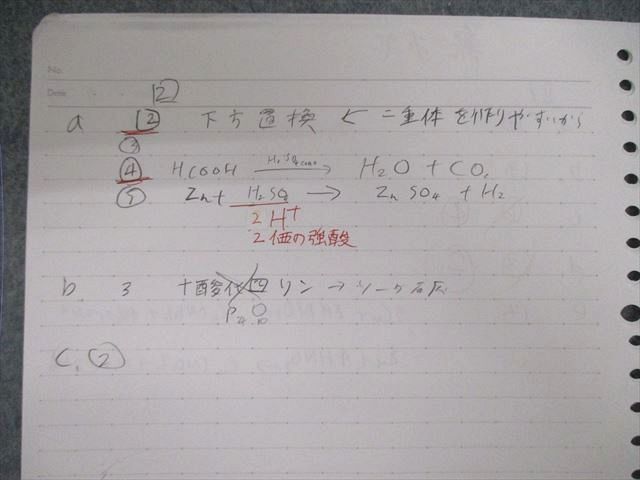 No.
Date
12
a ② 下方置換 ← 二重体を作りやすいから
③
④ HCOOH H₂SO₄ conc → H₂O + CO
⑤ Zn + H₂SO₄ → ZnSO₄ + H₂
2H⁺
2価の強酸
b 3 十酸化四リン → ソーダ石灰
P₄O₁₀
C, ②